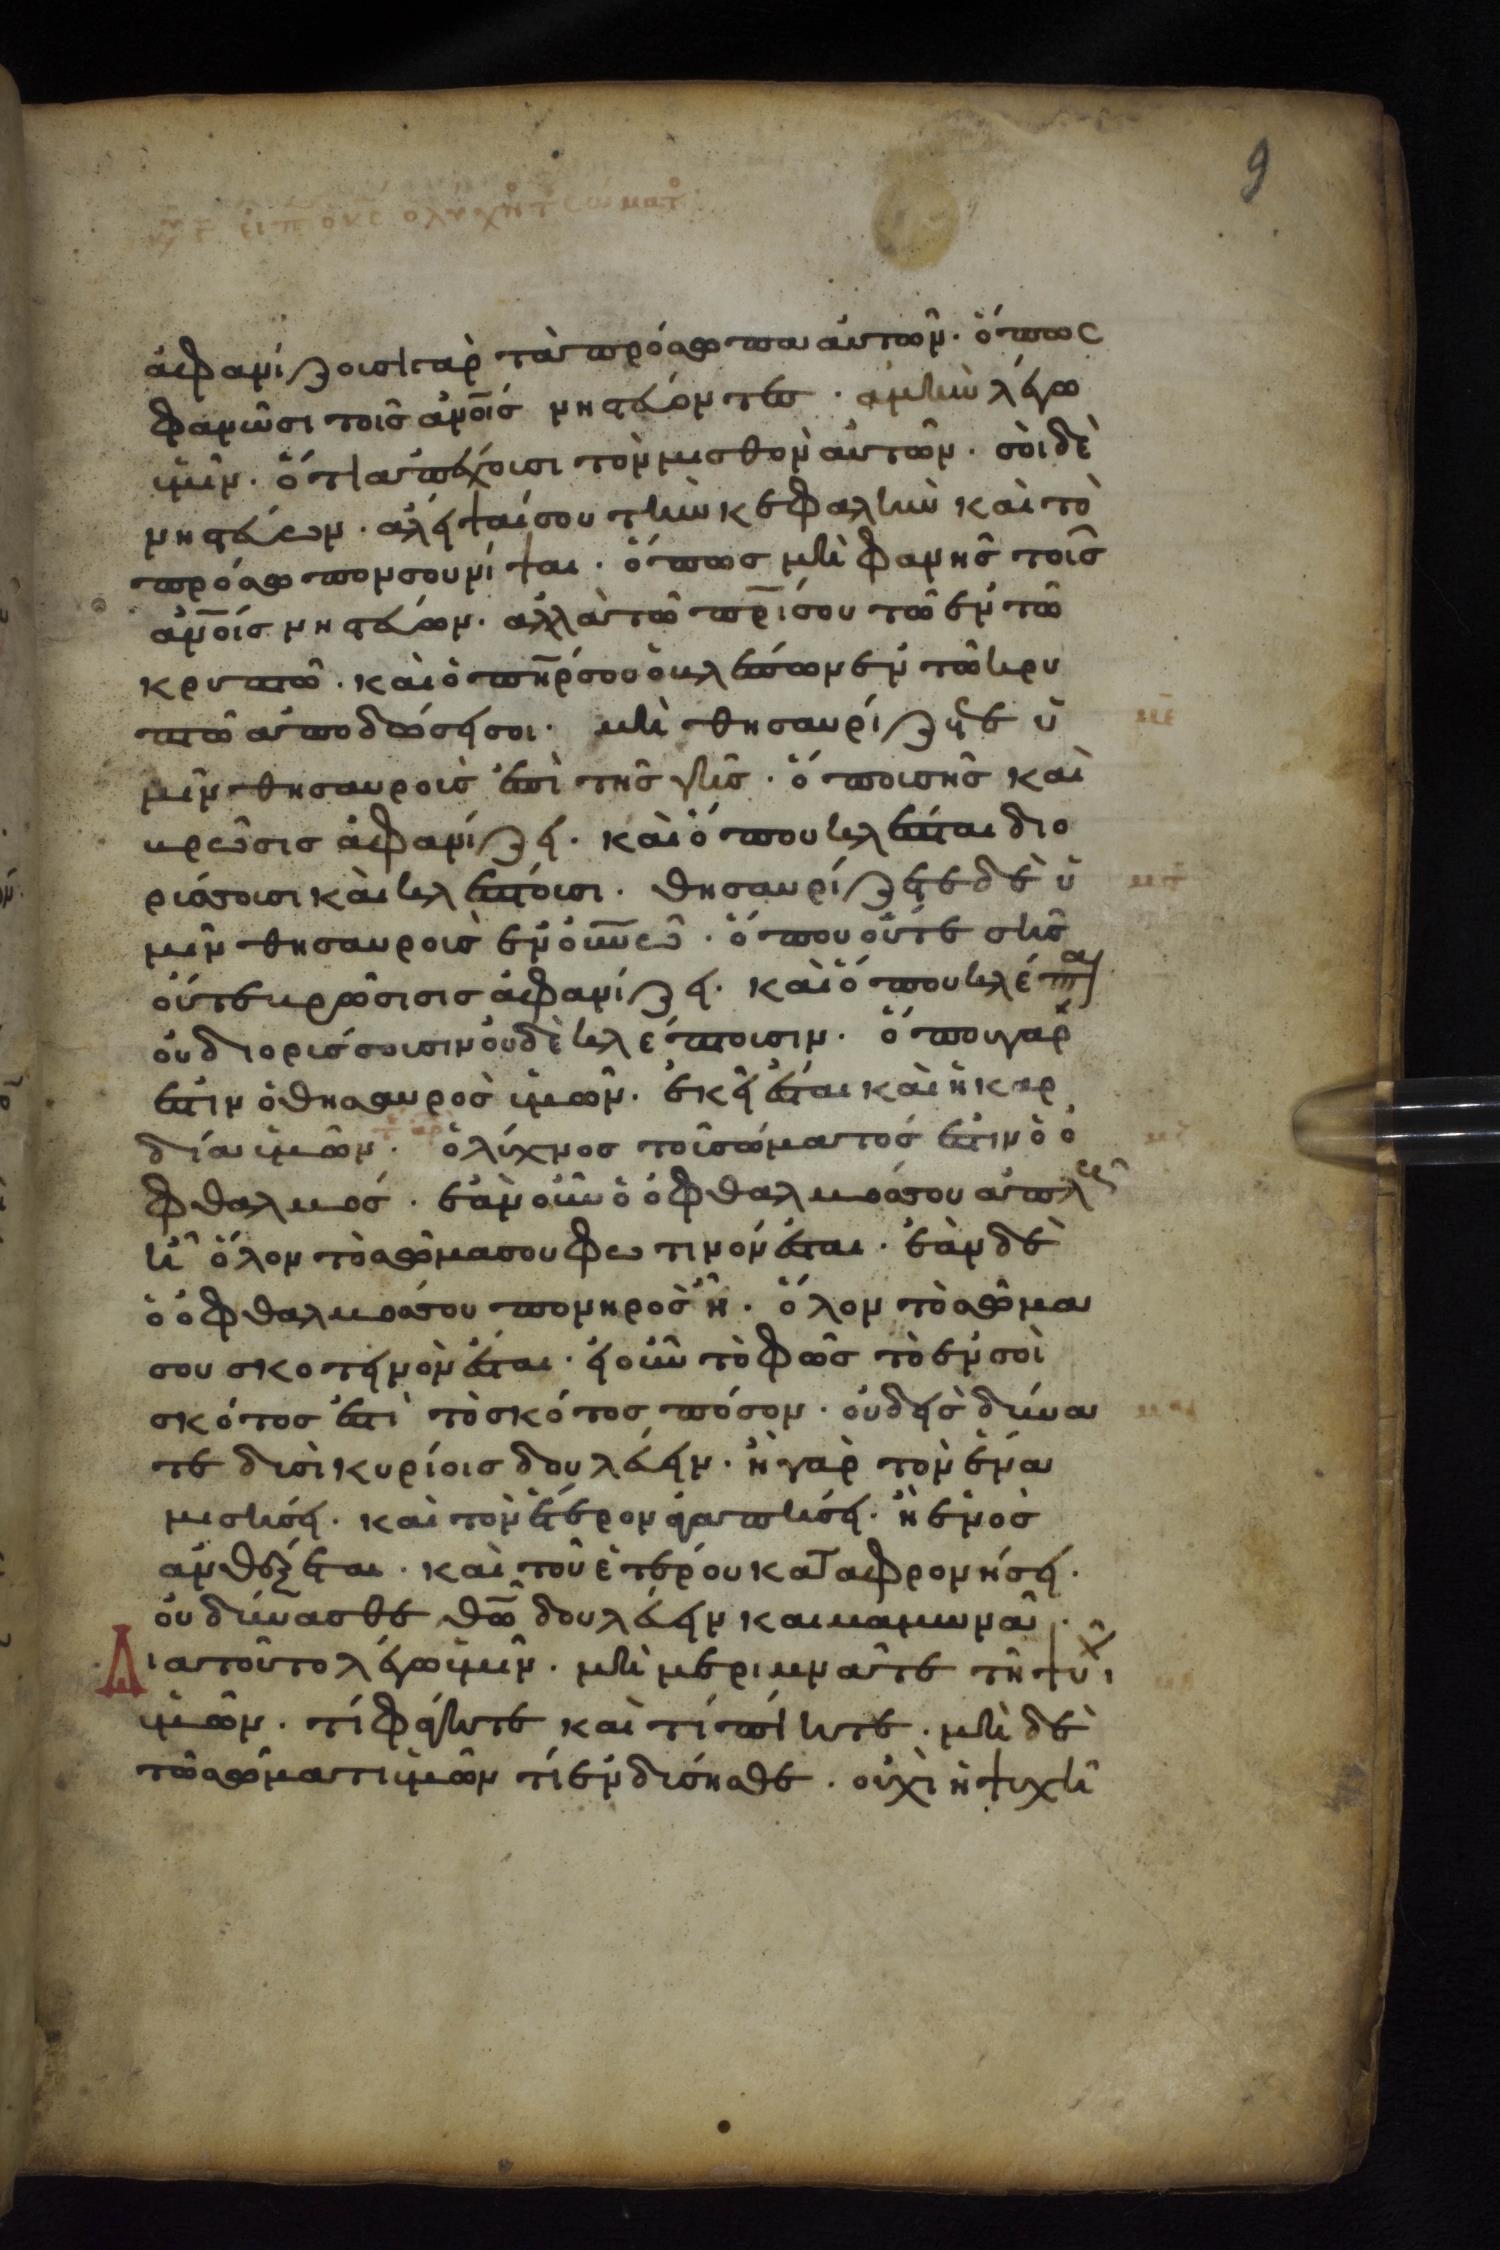 9
ἀφανίζουσι γὰρ τὰ πρόσωπα αὐτῶν· ὅπως
φανῶσι τοῖς ἀνοῖς νηστεύοντες· ἀμὴν λέγω
ὑμῖν· ὅτι ἀπέχουσι τὸν μισθὸν αὐτῶν· σὺ δὲ
νηστεύων· ἄλειψαί σου τὴν κεφαλὴν καὶ τὸ
πρόσωπον σου νίψαι· ὅπως μὴ φανῆς τοῖς
ἀνοῖς νηστεύων· ἀλλὰ τῶ πρί σου τῶ ἐν τῶ
κρυπτῶ· καὶ ὁ πηρ σου ὁ βλέπων ἐν τῶ κρυ
πτῶ ἀποδώσει σοι· μὴ θησαυρίζετε ὑ
μῖν θησαυροὺς ἐπὶ τῆς γῆς· ὅπου σὴς καὶ
βρῶσις ἀφανίζει· καὶ ὅπου κλέπται διο
ρύσσουσι καὶ κλέπτουσι· θησαυρίζετε δὲ ὑ
μῖν θησαυροὺς ἐν οὐνῶ· ὅπου οὔτε σὴς
οὔτε βρῶσισις ἀφανίζει· καὶ ὅπου κλέπται
οὐ διορύσσουσιν οὐδὲ κλέπτουσιν· ὅπου γάρ
ἐστιν ὁ θησαυρὸς ὑμῶν· ἐκεῖ ἔσται καὶ ἡ καρ
δία ὑμῶν· ὁ λύχνος τοῦ σώματός ἐστιν ὁ ὀ
φθαλμός· ἐὰν οὖν ὁ ὀφθαλμός σου ἁπλοῦς
ἦ ὅλον τὸ σῶμα σου φωτινόν ἔσται· ἐὰν δὲ
ὁ ὀφθαλμός σου πονηρὸς ἦ· ὅλον τὸ σῶμα
σου σκοτεινὸν ἔσται· εἰ οὖν τὸ φῶς τὸ ἐν σοὶ
σκότος ἐστὶ τὸ σκότος πόσον· οὐδεὶς δύνα
τε δυσὶ κυρίοις δουλεύειν· ἢ γὰρ τὸν ἕνα
μισήσει· καὶ τὸν ἕτερον ἀγαπήσει· ἢ ἑνὸς
ἀνθέξεται· καὶ τοῦ ἑτέρου καταφρονήσει·
οὐ δύνασθε θῶ δουλεύειν και μαμωνᾶ·
Διατοῦτο λέγω ὑμῖν· μὴ μεριμνᾶτε τῆ ψυχῆ
ὑμῶν· τί φάγητε καὶ τί πίητε· μὴ δὲ
τῶ σώματι ὑμῶν τί ἐνδύσησθε· οὐχὶ ἡ ψυχὴ